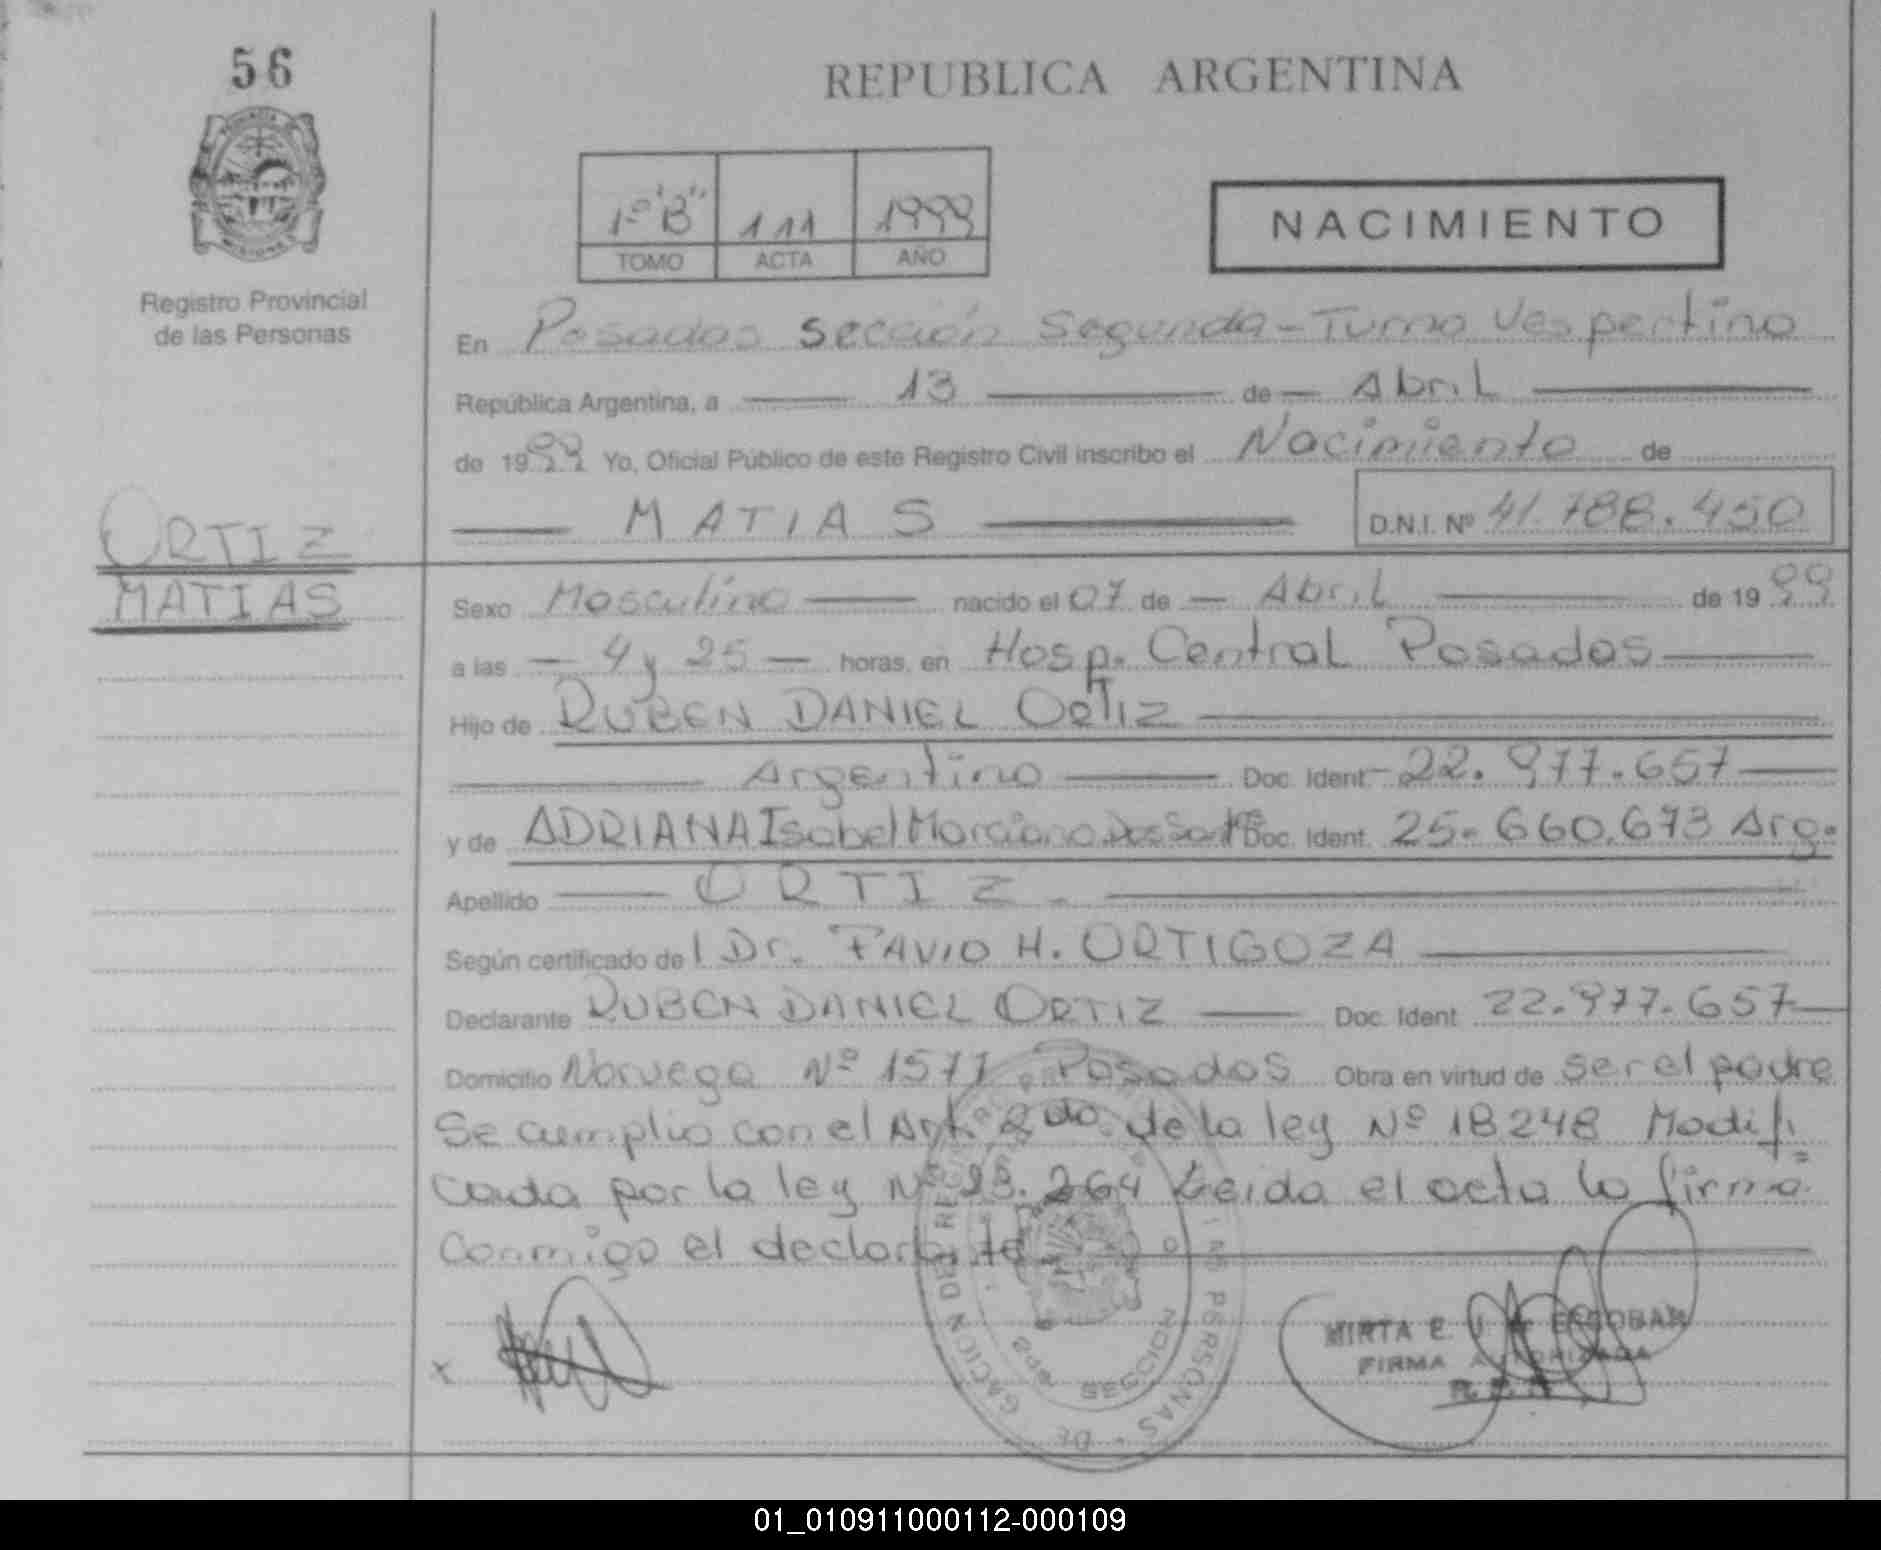 56
REPUBLICA ARGENTINA
1º "B" 111 1999
TOMO ACTA AÑO
NACIMIENTO
Registro Provincial
de las Personas
En Posadas Sección Segunda - Turno Vespertino
República Argentina, a 13 de Abril
de 1999 Yo, Oficial Público de este Registro Civil inscribo el Nacimiento de
MATIAS D.N.I. Nº 41.788.450
ORTIZ
MATIAS
Sexo Masculino nacido el 07 de Abril de 1999
a las 4 y 25 horas, en Hosp. Central Posadas
Hijo de RUBEN DANIEL ORTIZ
Argentino Doc. Ident 22.977.657
y de ADRIANA Isabel Marciano Dos Santos Doc. Ident. 25.660.673 Arg.
Apellido ORTIZ.
Según certificado del Dr. FAVIO H. ORTIGOZA
Declarante RUBEN DANIEL ORTIZ Doc. Ident 22.977.657
Domicilio Noruega Nº 1577 Posadas Obra en virtud de ser el padre
Se cumplio con el Art. 2do. de la ley Nº 18248 Modifi
cada por la ley Nº 23.264 Leida el acta la firma
conmigo el declarante
MIRTA E. ESCOBAR
FIRMA AUTORIZADA
SECCION
01_010911000112-000109